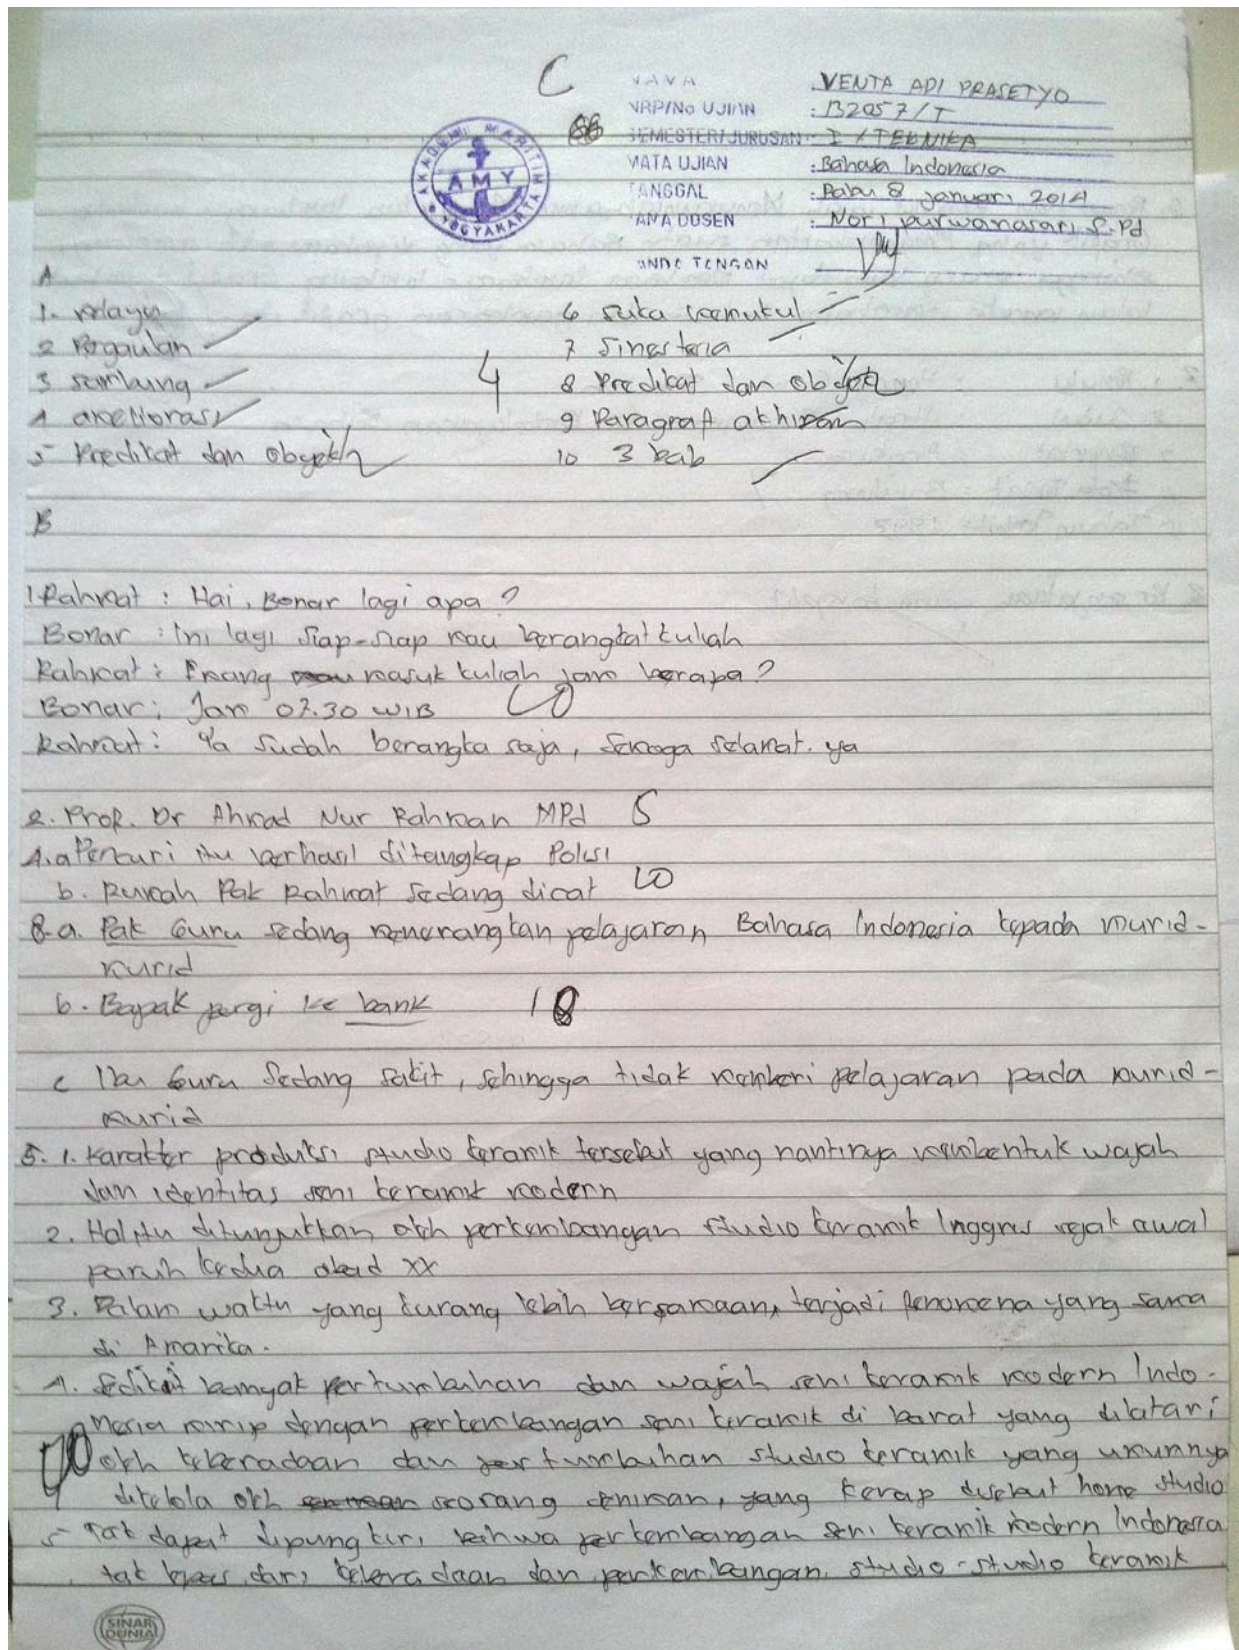 C
NAMA : VENTA ADI PRASETYO
NRP/No UJIAN : 132057/T
68 SEMESTER/JURUSAN : I / TEKNIKA
MATA UJIAN : Bahasa Indonesia
TANGGAL : Rabu 8 januari 2014
NAMA DOSEN : Nori purwanasari S.Pd
TANDA TANGAN
AKADEMI MARITIM YOGYAKARTA
AMY
A
1. Melayu
2 Pergaulan
3 sambung
4 ameliorasi
5 Predikat dan obyek
4
6 suka memukul
7 Sinestesia
8 Predikat dan obyek
9 Paragraf akhiran
10 3 bab
B
1 Rahmat : Hai, Bonar lagi apa ?
Bonar : Ini lagi siap-siap mau berangkat kuliah
Rahmat : Emang masuk kuliah jam berapa ?
Bonar : Jam 07.30 WIB 10
Rahmat : Ya sudah berangka saja, semoga selamat ya
2. Prof. Dr Ahmad Nur Rahman MPd 5
4. a Pencuri itu berhasil ditangkap Polisi
b. Rumah Pak Rahmat sedang dicat 10
8. a. Pak Guru sedang menerangkan pelajaran Bahasa Indonesia kepada murid-
murid
b. Bapak pergi ke bank 18
c Ibu Guru sedang sakit, sehingga tidak memberi pelajaran pada murid-
murid
5. 1. Karakter produksi studio keramik tersebut yang nantinya membentuk wajah
dan identitas seni keramik modern
2. Hal itu ditunjukkan oleh perkembangan studio keramik Inggris sejak awal
paruh kedua abad XX
3. Dalam waktu yang kurang lebih bersamaan, terjadi fenomena yang sama
di Amarika.
4. Sedikit banyak pertumbuhan dan wajah seni keramik modern Indo-
nesia mirip dengan perkembangan seni keramik di barat yang dilatari
oleh keberadaan dan pertumbuhan studio keramik yang umumnya
dikelola oleh seorang seniman, yang kerap disebut home studio
5 Tak dapat dipungkiri bahwa perkembangan seni keramik modern Indonesia
tak lepas dari keberadaan dan perkembangan studio-studio keramik
SINAR DUNIA